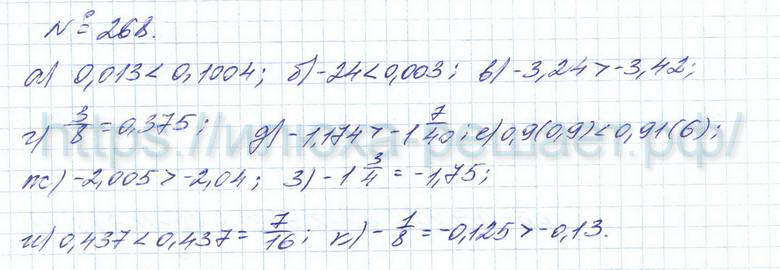 № 268.
а) 0,013 < 0,1004; б) -24 < 0,003; в) -3,24 > -3,42;
г) 3/8 = 0,375; д) -1,174 > -1 7/40; е) 0,9(0,9) < 0,91(6);
ж) -2,005 > -2,04; з) -1 3/4 = -1,75;
и) 0,437 < 0,437 = 7/16; к) -1/8 = -0,125 > -0,13.